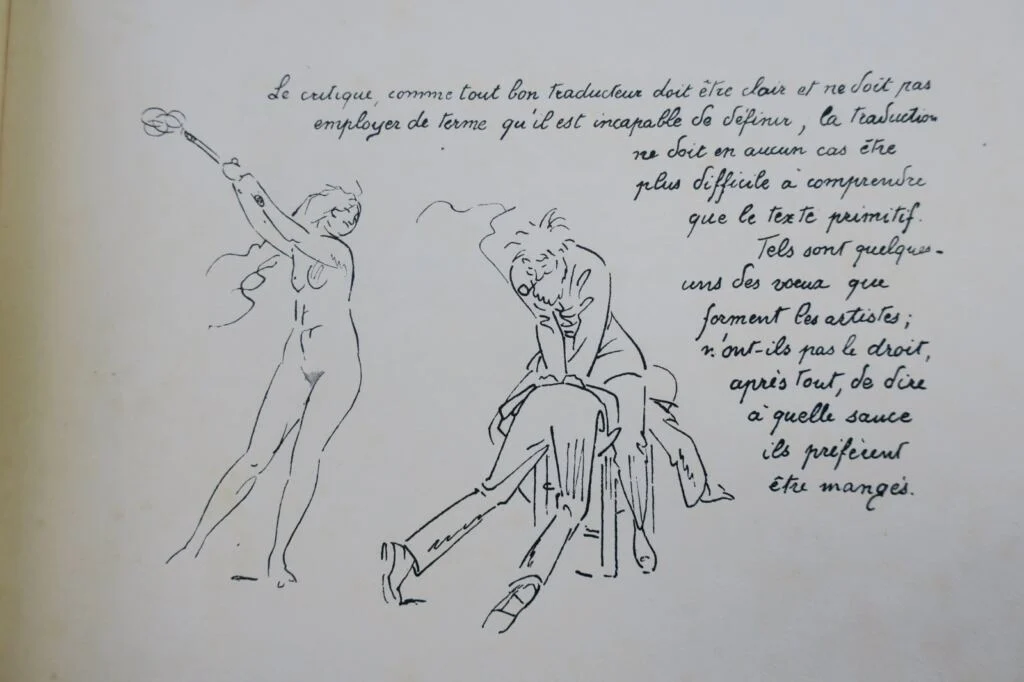 Le critique, comme tout bon traducteur doit être clair et ne doit pas
employer de terme qu'il est incapable de définir, la traduction
ne doit en aucun cas être
plus difficile à comprendre
que le texte primitif.
Tels sont quelques-
uns des voeux que
forment les artistes;
n'ont-ils pas le droit,
après tout, de dire
à quelle sauce
ils préfèrent
être mangés.